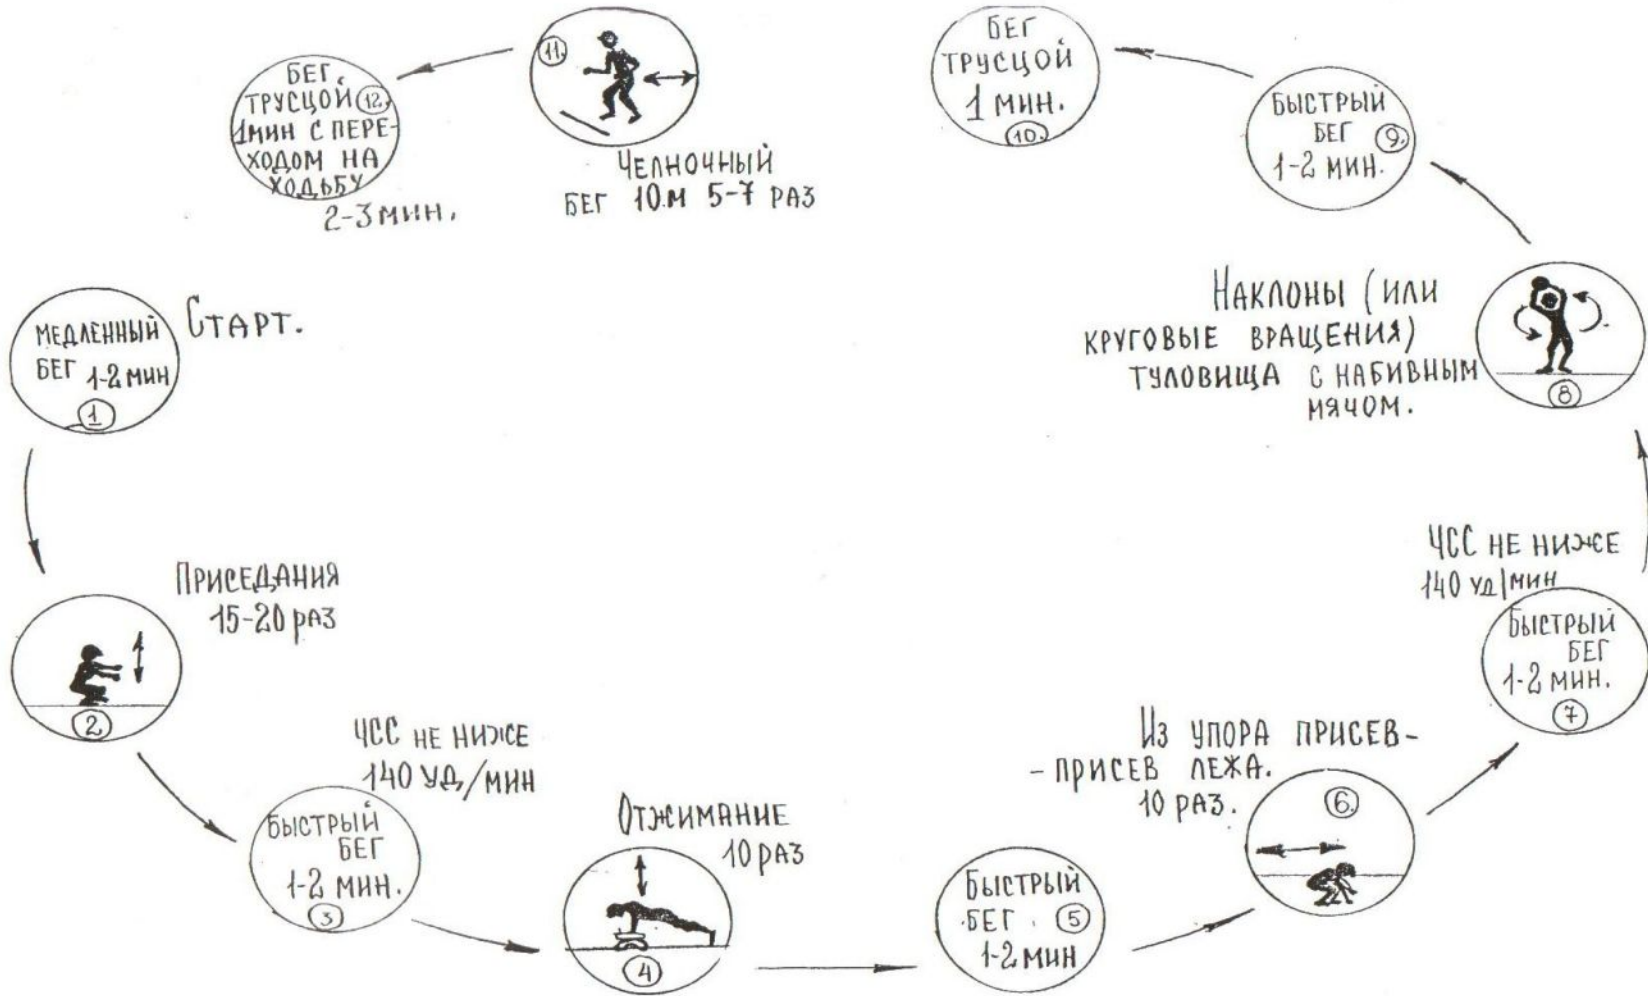 МЕДЛЕННЫЙ
БЕГ 1-2 МИН
1
СТАРТ.
ПРИСЕДАНИЯ
15-20 РАЗ
2
ЧСС НЕ НИЖЕ
140 УД/МИН
БЫСТРЫЙ
БЕГ
1-2 МИН.
3
ОТЖИМАНИЕ
10 РАЗ
4
БЫСТРЫЙ
БЕГ. 5
1-2 МИН
ИЗ УПОРА ПРИСЕВ-
-ПРИСЕВ ЛЕЖА.
10 РАЗ.
6.
ЧСС НЕ НИЖЕ
140 УД/МИН
БЫСТРЫЙ
БЕГ
1-2 МИН.
7
НАКЛОНЫ (ИЛИ
КРУГОВЫЕ ВРАЩЕНИЯ)
ТУЛОВИЩА С НАБИВНЫМ
МЯЧОМ.
8
БЫСТРЫЙ
БЕГ 9.
1-2 МИН.
БЕГ
ТРУСЦОЙ
1 МИН.
10.
11.
ЧЕЛНОЧНЫЙ
БЕГ 10М 5-7 РАЗ
БЕГ
ТРУСЦОЙ 12.
1МИН С ПЕРЕ-
ХОДОМ НА
ХОДЬБУ
2-3 МИН.